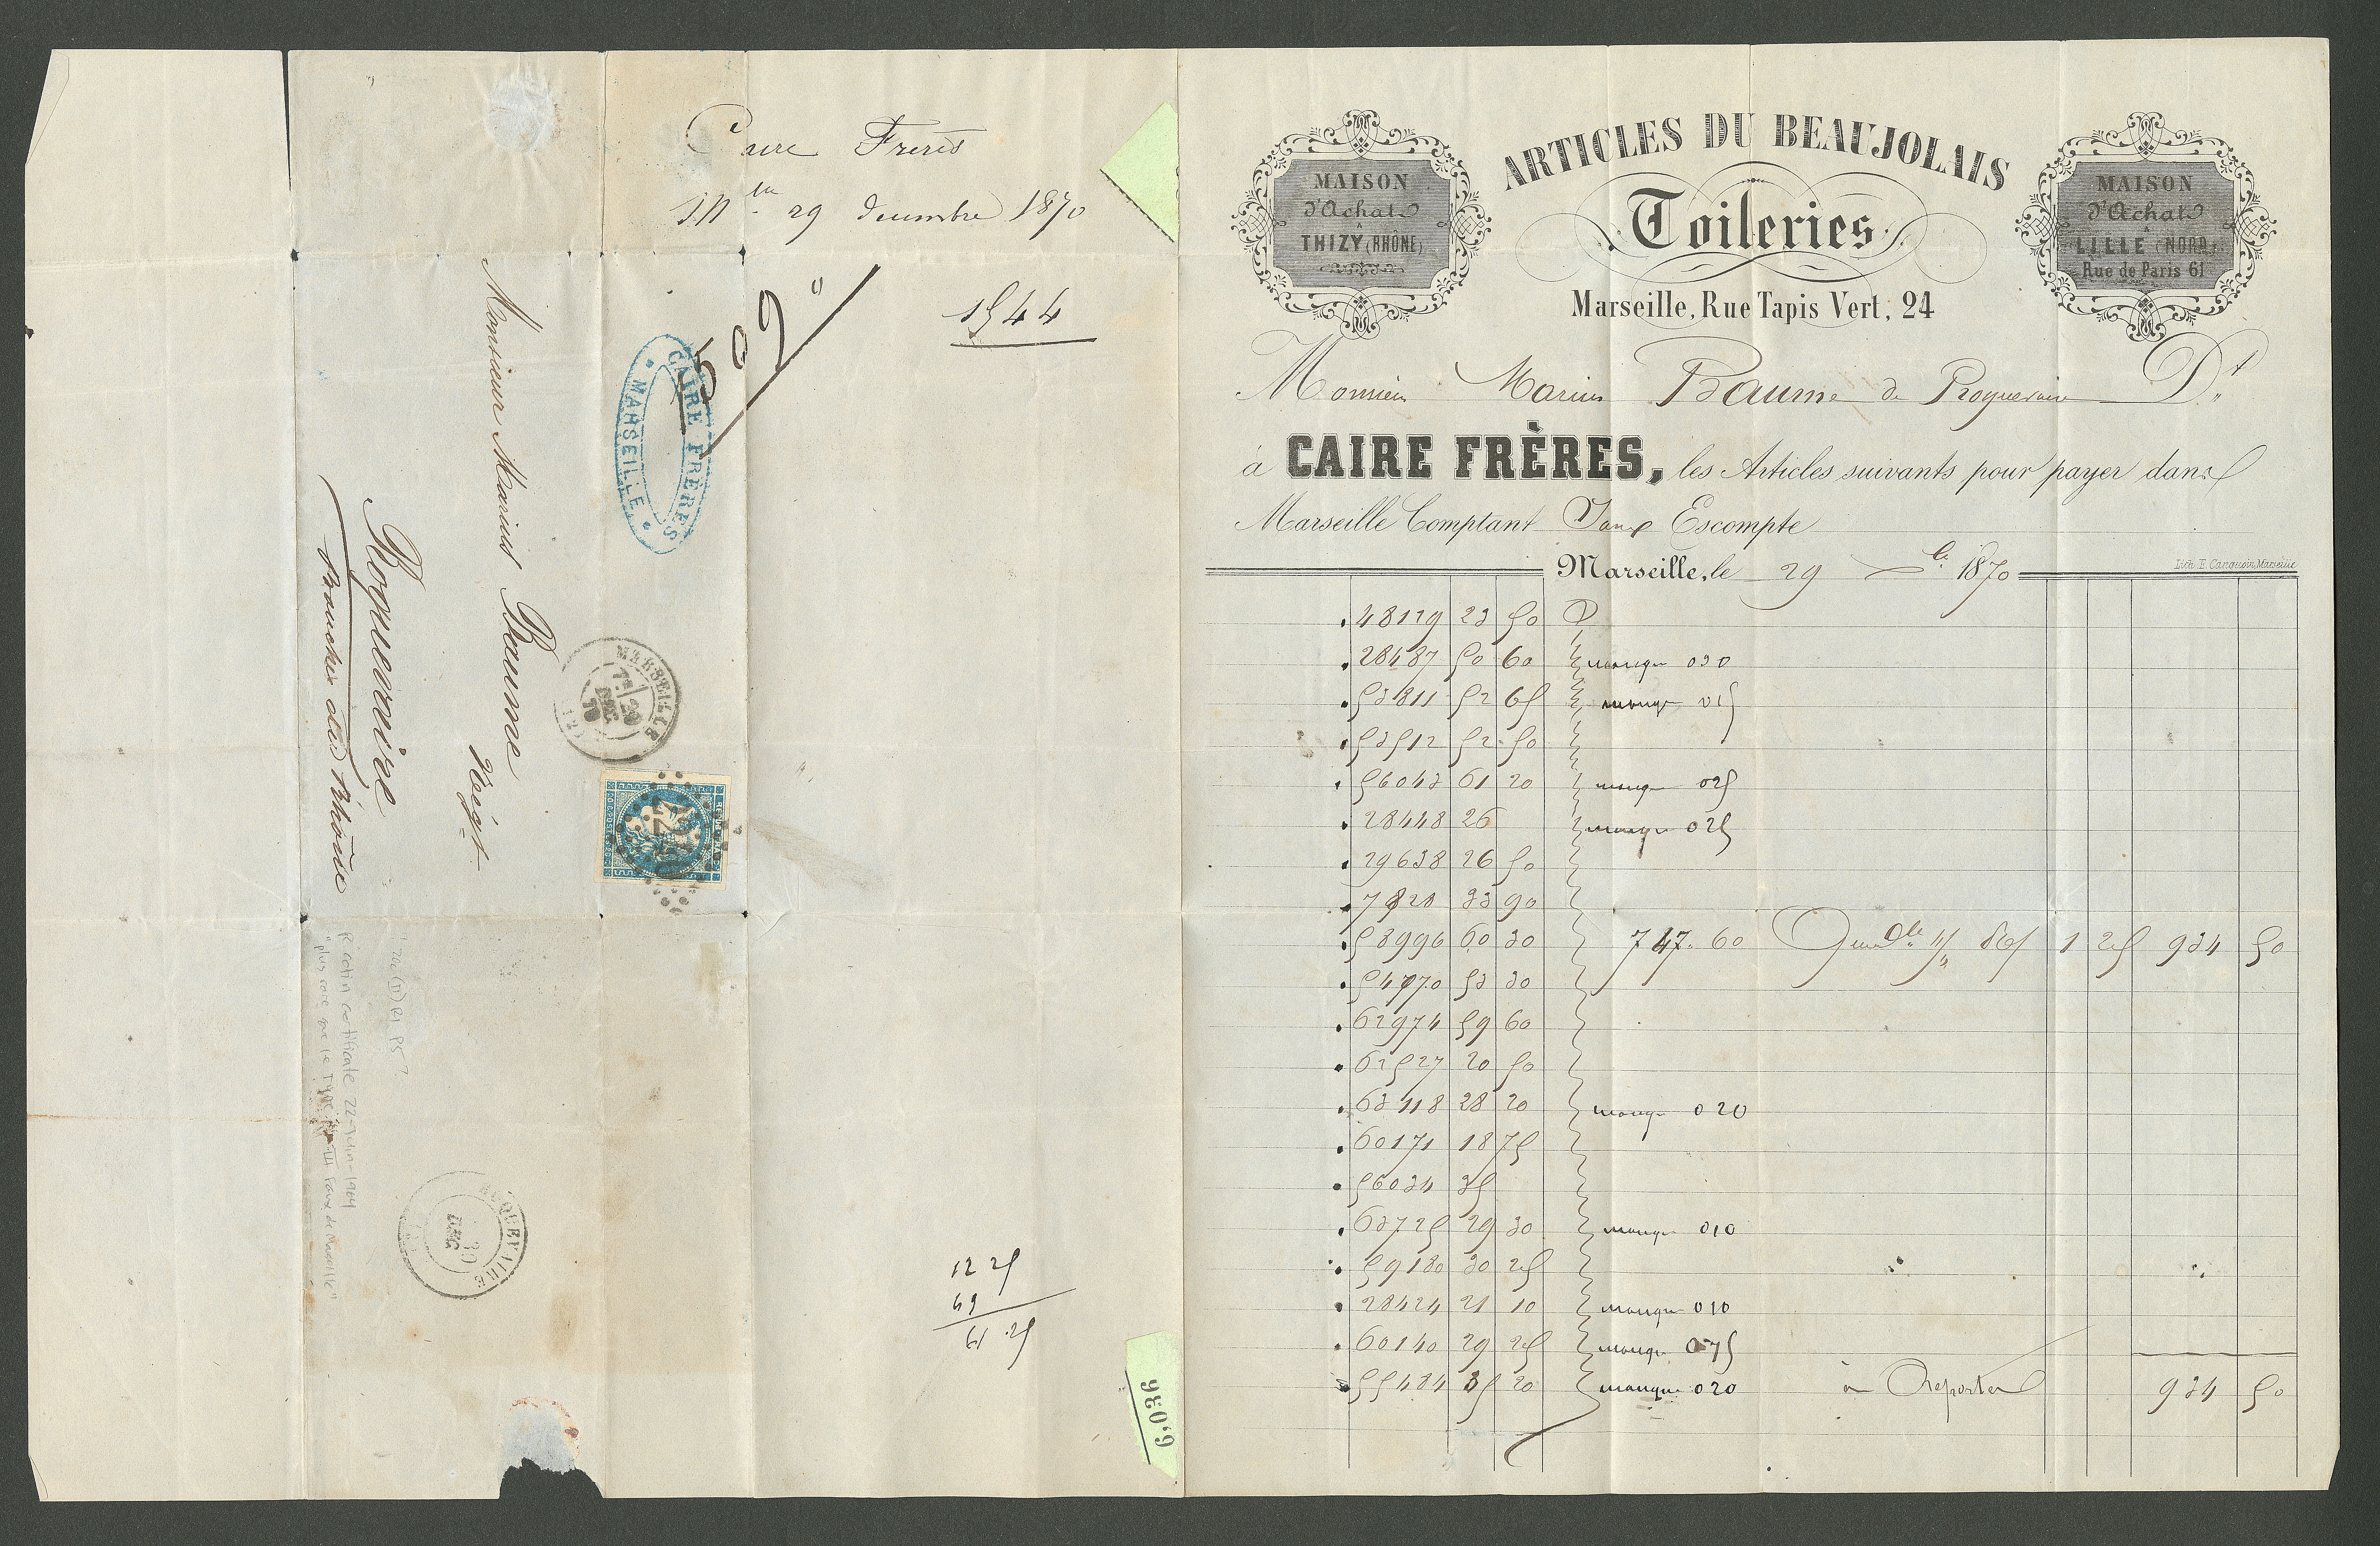 Caire Frères
M^lle 29 decembre 1870
1544
509"
CAIRE FRÈRES
MARSEILLE
Monsieur Marius Baume
Négt
Roquevaire
Bouches du Rhône
MARSEILLE
7E/29
DEC
70
(12)
REPUB FRANC
20 C POSTES 20 C
ROQUEVAIRE
30
DEC
R Calin certificate 22-Juin-1904
12 25
49
61 25
6,036
ARTICLES DU BEAUJOLAIS
Toileries
Marseille, Rue Tapis Vert, 24
MAISON
d'Achats
à
THIZY (RHÔNE)
MAISON
d'Achats
à
LILLE (NORD)
Rue de Paris 61
Monsieur Marius Baume de Roquevaire Dt
à CAIRE FRÈRES, les Articles suivants pour payer dans
Marseille Comptant Sans Escompte
Marseille, le 29 Xbre 1870
Lith. E. Canquoin, Marseille
48129 23 50
28487 50 60 manque 030
53811 52 65 manque 015
53512 52 50
56043 61 20 manque 025
28448 26 manque 025
29638 26 50
7828 33 90
58996 60 30 747.60 86/ 1 25 934 50
54770 53 30
62974 59 60
62527 20 50
63118 28 20 manque 020
60171 18 75
56034 35
63725 29 30 manque 010
59180 30 25
28424 21 10 manque 010
60140 29 25 manque 075
55484 35 20 manque 020 à Reporter 934 50